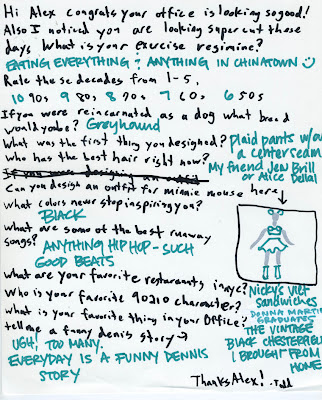 Hi Alex congrats your office is looking so good!
Also I noticed you are looking super cut those
days What is your excercise regimine?
EATING EVERYTHING & ANYTHING IN CHINATOWN
Rate these decades from 1-5,
10 90s 9 80s 8 70s 7 60s 6 50s
If you were reincarnated as a dog what breed
would you be? Greyhound
What was the first thing you designed? Plaid pants w/out
a center seam
Who has the best hair right now? My friend Jen Brill
or Alice Dellal
If you were designing an outfit
Can you design an outfit for minnie mouse here
What colors never stop inspiring you?
BLACK
What are some of the best runway
songs? ANYTHING HIP HOP - SUCH
GOOD BEATS
What are your favorite restaraunts in nyc? Nicky's Viet
Sandwiches
Who is your favorite 90210 character? DONNA MARTIN
GRADUATES
What is your favorite thing in your Office? THE VINTAGE
BLACK CHESTERFIELD
I BROUGHT FROM
HOME
tell me a funny denis story
UGH! TOO MANY.
EVERYDAY IS A FUNNY DENNIS
STORY
Thanks Alex!